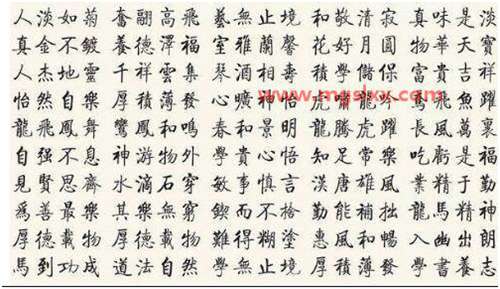 人淡如菊 奮翮高飛 藝無止境 和敬清寂 真味是淡
真金不鍍 養德澤福 室雅蘭馨 花好月圓 物華天寶
人杰地靈 千祥雲集 琴酒相壽 積學儲保 富貴吉祥
怡然自樂 厚積薄發 心曠神怡 虎嘯龍吟 魚躍
龍飛鳳舞 鸞鳳和鳴 春和景明 龍騰虎躍 長風萬裏
自强不息 神游物外 學貴心悟 知足常樂 吃虧是福
見賢思齊 水滴石穿 敏事慎言 漢唐雄風 業精于勤
爲善最樂 其樂無窮 鍥而不捨 勤能補拙 龍馬精神
厚德載物 厚德載物 難得糊塗 惠風和暢 入幽出朗
馬到功成 道法自然 學無止境 厚積薄發 學書養志